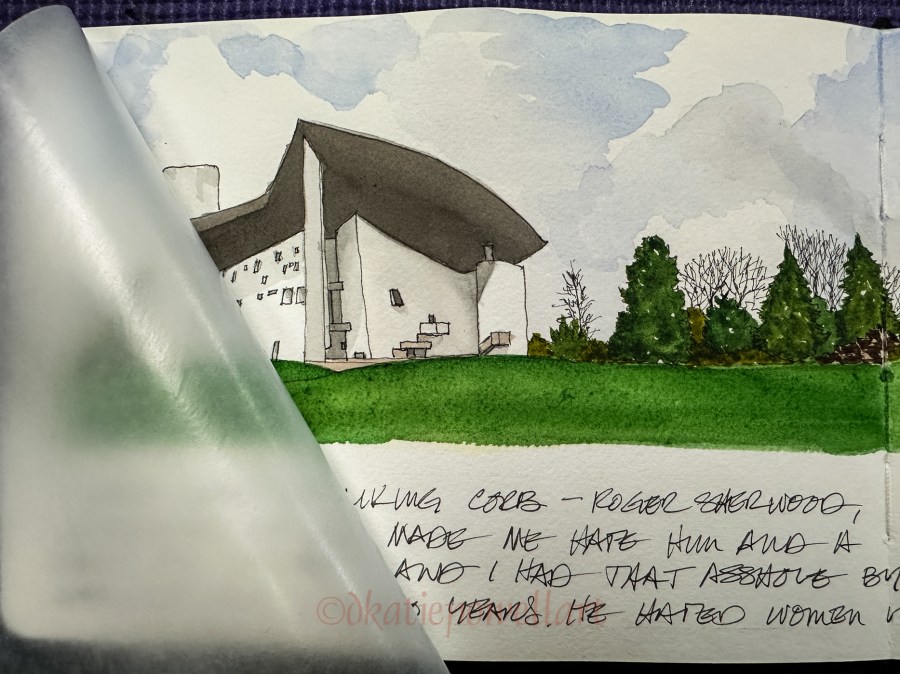 CORB – ROGER SHERWOOD,
MADE ME HATE HIM AND A
AND I HAD THAT ASSHOLE
YEARS. HE HATED WOMEN
©dkatiepowellart